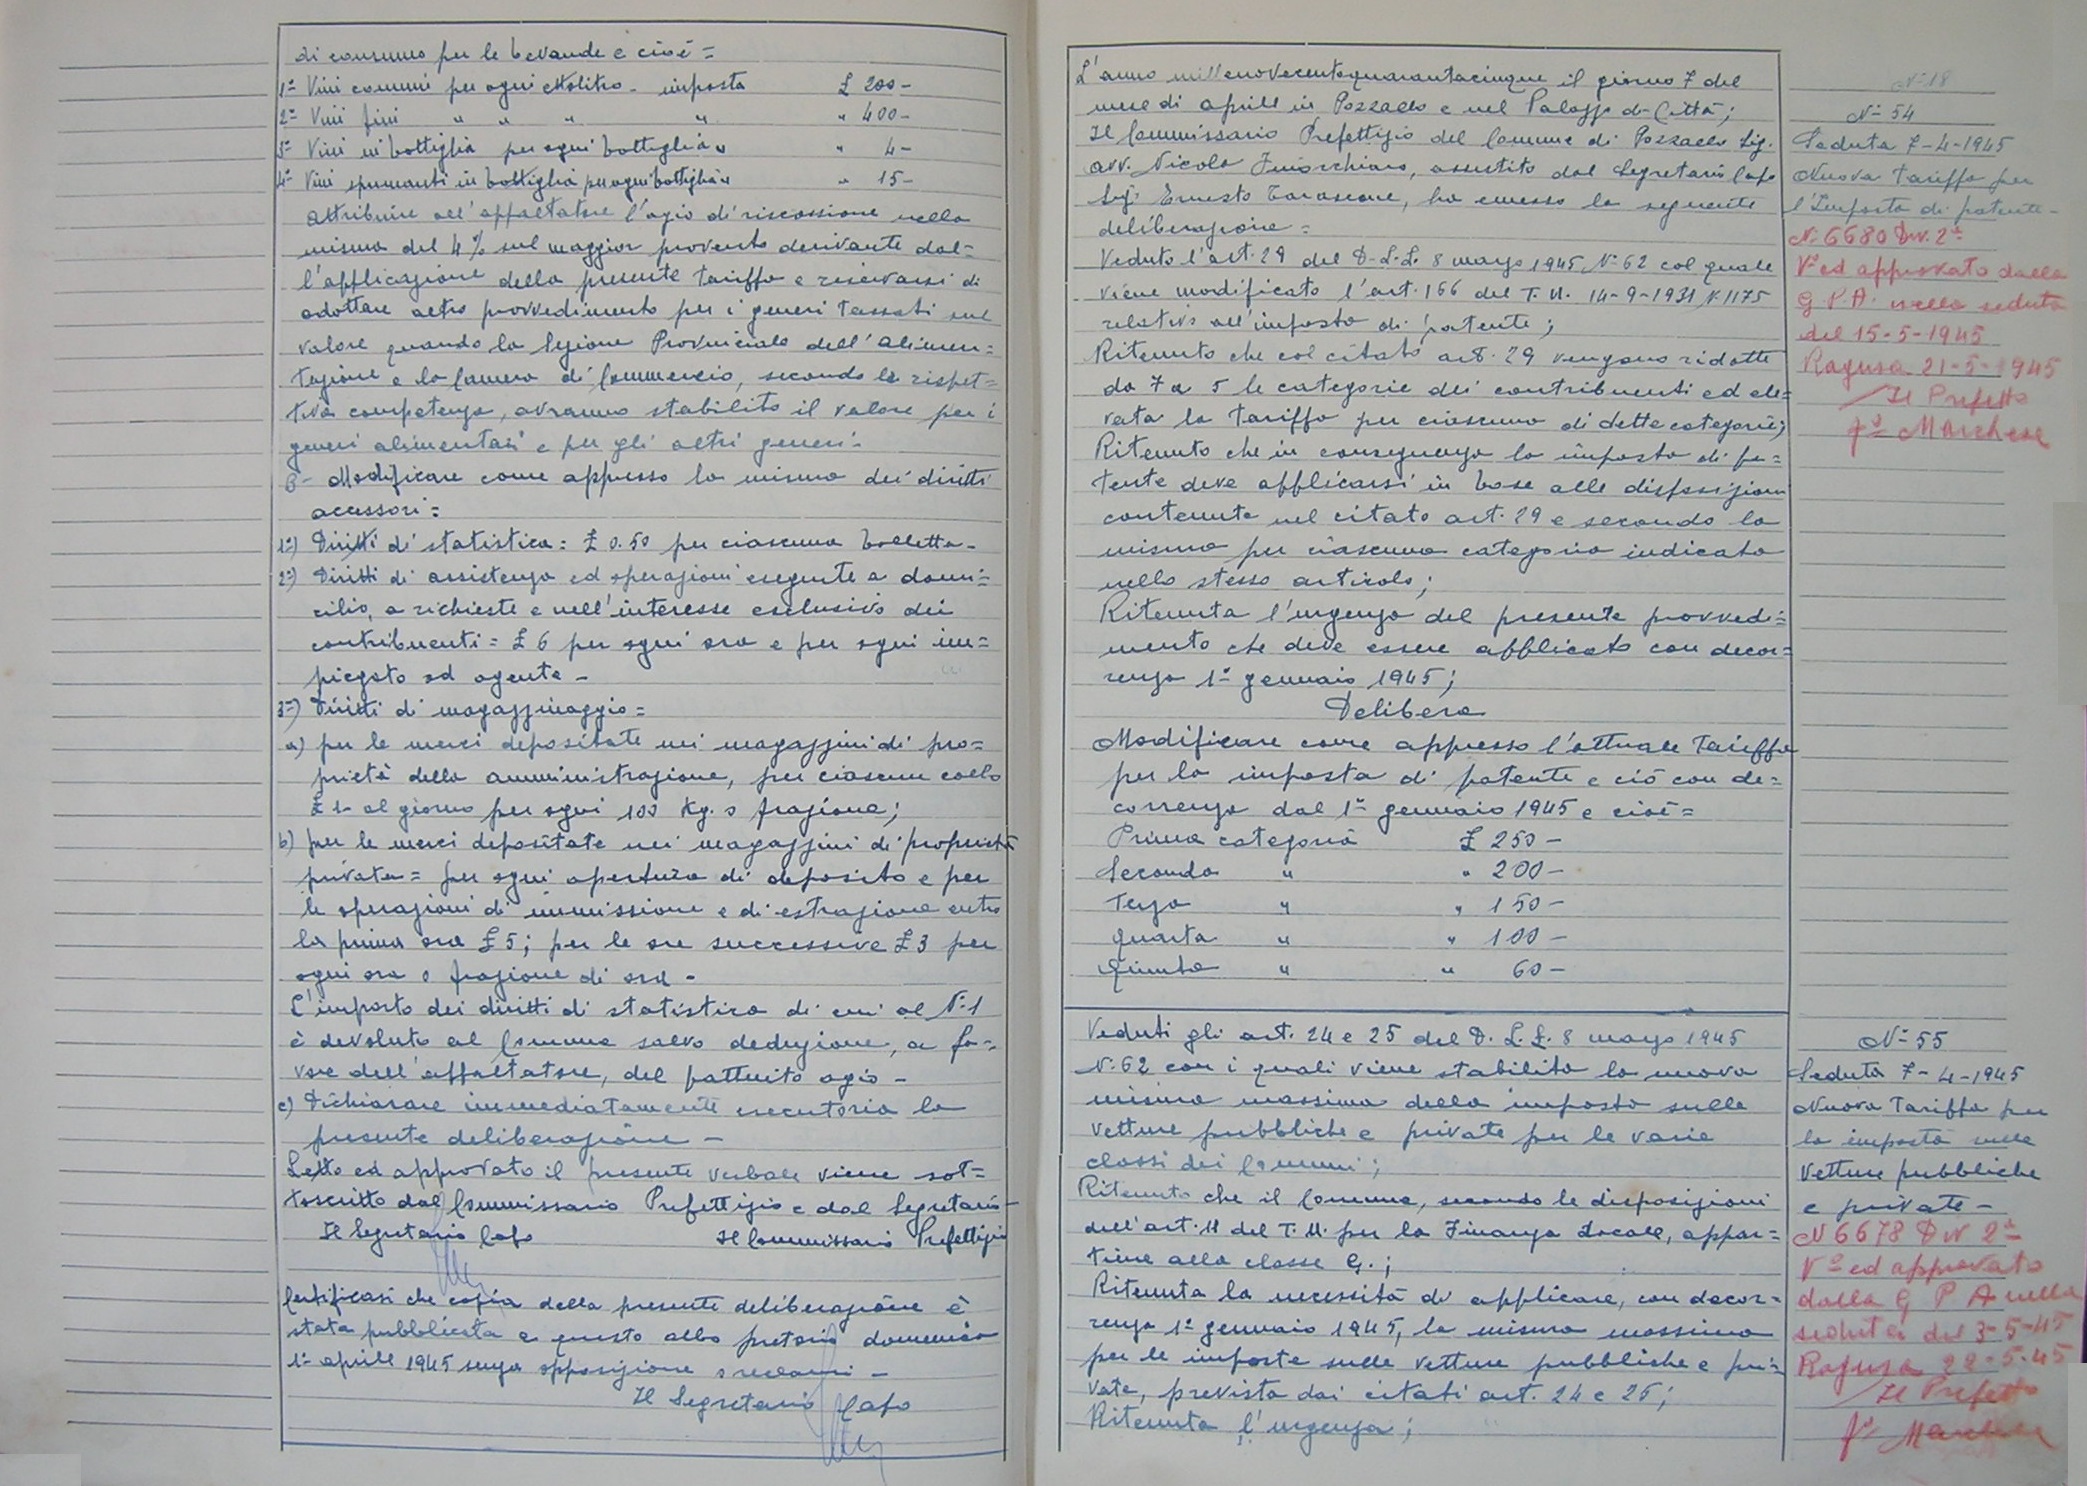 di consumo per le bevande e cioè =
1° Vini comuni per ogni ettolitro - imposta £ 200 -
2° Vini fini " " " " " 400 -
3° Vini in bottiglia per ogni bottiglia " " 4 -
4° Vini spumanti in bottiglia per ogni bottiglia " " 15 -
attribuire all'appaltatore l'agio di riscossione nella
misura del 4% sul maggior provento derivante dal=
l'applicazione della presente tariffa e riservarsi di
adottare altro provvedimento per i generi tassati sul
valore quando la Sezione Provinciale dell'alimen=
tazione e la Camera di Commercio, secondo la rispet=
tiva competenza, avranno stabilito il valore per i
generi alimentari e per gli altri generi -
B - Modificare come appresso la misura dei diritti
accessori =
1°) Diritti di statistica = £ 0.50 per ciascuna bolletta -
2°) Diritti di assistenza ed operazioni eseguite a domi=
cilio, a richieste e nell'interesse esclusivo dei
contribuenti = £ 6 per ogni ora e per ogni im=
piegato od agente -
3°) Diritti di magazzinaggio =
a) per le merci depositate nei magazzini di pro=
prietà della amministrazione, per ciascun collo
£ 1 - al giorno per ogni 100 Kg. o frazione;
b) per le merci depositate nei magazzini di proprietà
privata = per ogni apertura di deposito e per
le operazioni di immissione e di estrazione entro
la prima ora £ 5; per le ore successive £ 3 per
ogni ora o frazione di ora -
L'importo dei diritti di statistica di cui al N° 1
è devoluto al Comune salvo deduzione, a fa=
vore dell'appaltatore, del pattuito agio -
c) Dichiarare immediatamente esecutoria la
presente deliberazione -
Letto ed approvato il presente verbale viene sot=
toscritto dal Commissario Prefettizio e dal Segretario -
Il Segretario Capo Il Commissario Prefettizio
Certificasi che copia della presente deliberazione è
stata pubblicata a questo albo pretorio domenica
1° aprile 1945 senza opposizione o reclami -
Il Segretario Capo
L'anno millenovecentoquarantacinque il giorno 7 del
mese di aprile in Pozzallo e nel Palazzo di Città;
Il Commissario Prefettizio del Comune di Pozzallo Sig.
avv. Nicola , assistito dal Segretario Capo
Sig. Ernesto Tarascone, ha emesso la seguente
deliberazione =
Veduto l'art. 29 del D.L.L. 8 marzo 1945 N° 62 col quale
viene modificato l'art. 166 del T.U. 14-9-1931 N. 1175
relativo all'imposta di patente;
Ritenuto che col citato art. 29 vengono ridotte
da 7 a 5 le categorie dei contribuenti ed ele=
vata la tariffa per ciascuna di dette categorie;
Ritenuto che in conseguenza la imposta di pa=
tente deve applicarsi in base alle disposizioni
contenute nel citato art. 29 e secondo la
misura per ciascuna categoria indicata
nello stesso articolo;
Ritenuta l'urgenza del presente provvedi=
mento che deve essere applicato con decor=
renza 1° gennaio 1945;
Delibera
Modificare come appresso l'attuale tariffa
per la imposta di patente e ciò con de=
correnza dal 1° gennaio 1945 e cioè =
Prima categoria £ 250 -
Seconda " " 200 -
Terza " " 150 -
Quarta " " 100 -
Quinta " " 60 -
Veduti gli art. 24 e 25 del D.L.L. 8 marzo 1945
N. 62 con i quali viene stabilita la nuova
misura massima della imposta sulle
vetture pubbliche e private per le varie
classi dei Comuni;
Ritenuto che il Comune, secondo le disposizioni
dell'art. 11 del T.U. per la Finanza Locale, appar=
tiene alla classe G.;
Ritenuta la necessità di applicare, con decor=
renza 1° gennaio 1945, la misura massima
per le imposte sulle vetture pubbliche e pri=
vate, prevista dai citati art. 24 e 25;
Ritenuta l'urgenza;
N° 18
N° 54
Seduta 7-4-1945
Nuova tariffa per
l'Imposta di patente -
N. 6680 Div. 2ª
V° ed approvato dalla
G.P.A. nella seduta
del 15-5-1945
Ragusa 21-5-1945
Il Prefetto
f° Marchese
N° 55
Seduta 7-4-1945
Nuova Tariffa per
la imposta sulle
vetture pubbliche
e private -
N 6678 Div 2ª
V° ed approvato
dalla G P A nella
seduta del 3-5-45
Ragusa 22-5-45
Il Prefetto
f° Marchese